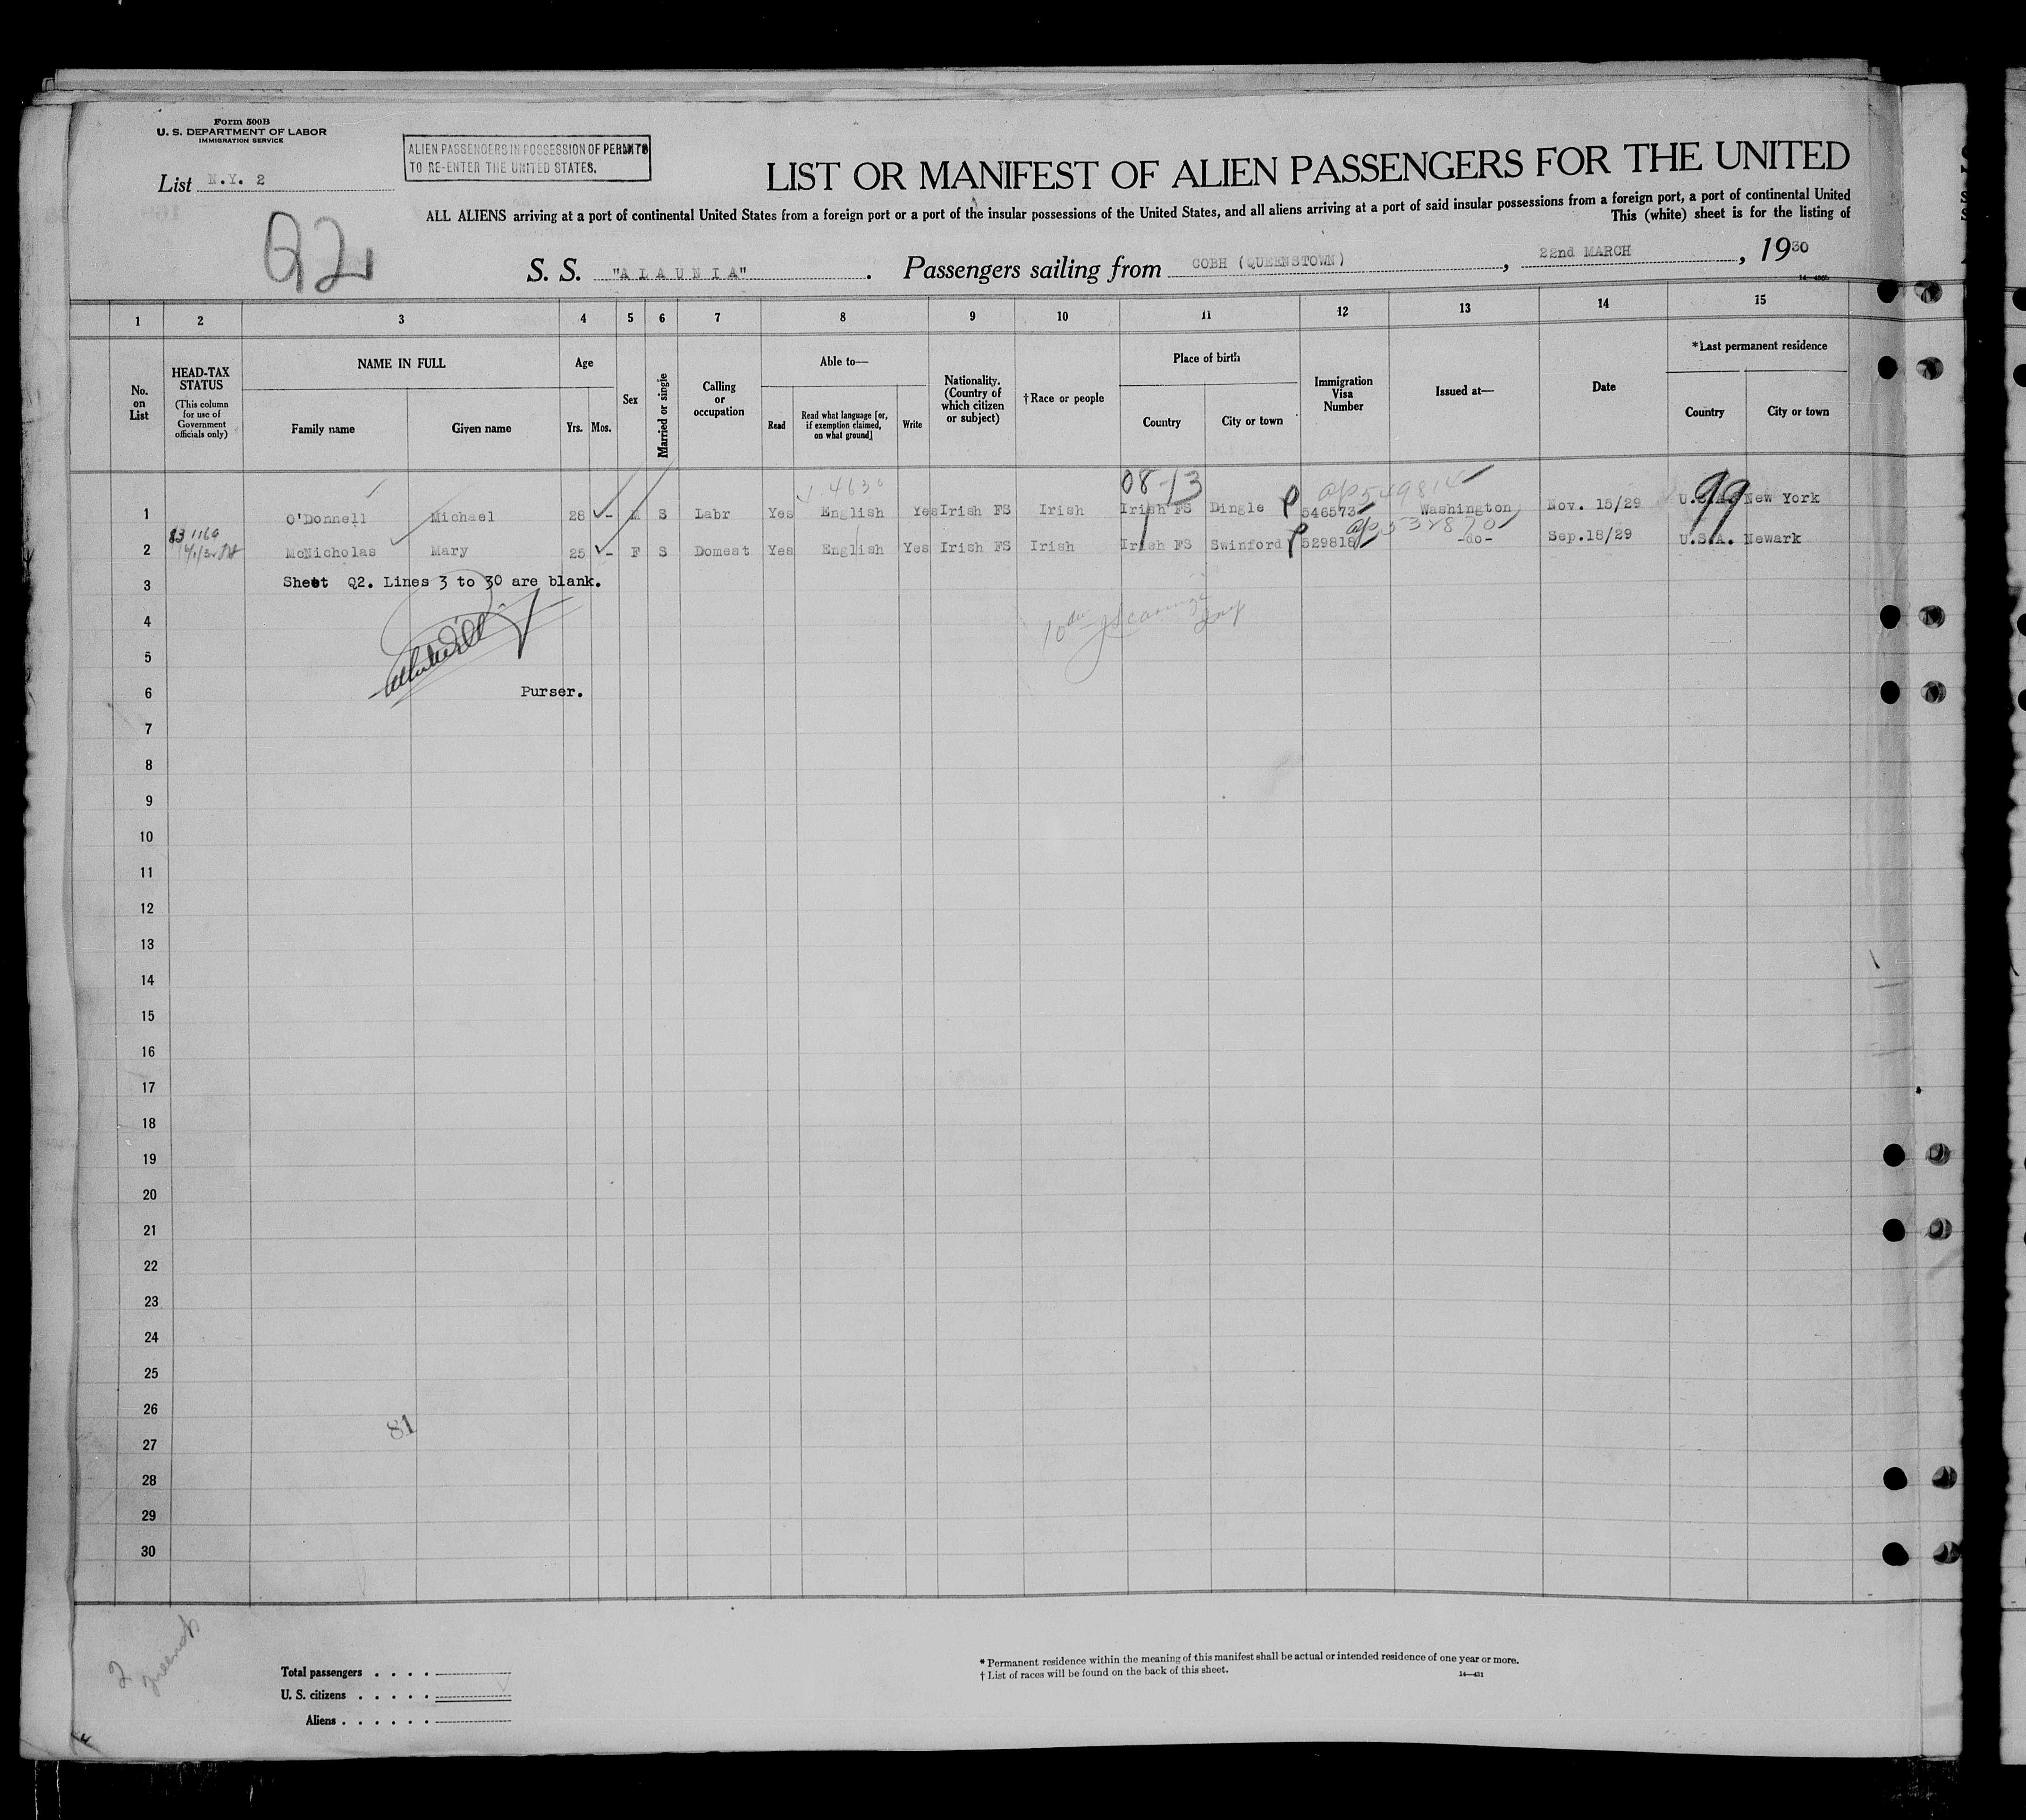 Form 500B
U. S. DEPARTMENT OF LABOR
IMMIGRATION SERVICE
ALIEN PASSENGERS IN POSSESSION OF PERMITS
TO RE-ENTER THE UNITED STATES.
List N.Y. 2
Q2
LIST OR MANIFEST OF ALIEN PASSENGERS FOR THE UNITED
ALL ALIENS arriving at a port of continental United States from a foreign port or a port of the insular possessions of the United States, and all aliens arriving at a port of said insular possessions from a foreign port, a port of continental United
This (white) sheet is for the listing of
S. S. "ALAUNIA". Passengers sailing from COBH (QUEENSTOWN), 22nd MARCH, 1930
1 2 3 4 5 6 7 8 9 10 11 12 13 14 15
No. on List
HEAD-TAX STATUS
(This column for use of Government officials only)
NAME IN FULL
Family name Given name
Age
Yrs. Mos.
Sex
Married or single
Calling or occupation
Able to—
Read
Read what language [or, if exemption claimed, on what ground]
Write
Nationality. (Country of which citizen or subject)
†Race or people
Place of birth
Country City or town
Immigration Visa Number
Issued at—
Date
*Last permanent residence
Country City or town
08-13
1 O'Donnell Michael 28 - M S Labr Yes English Yes Irish FS Irish Irish FS Dingle P 546573 Washington Nov. 15/29 U.S.A. New York
99
2 McNicholas Mary 25 - F S Domest Yes English Yes Irish FS Irish Irish FS Swinford P 529818 -do- Sep.18/29 U.S.A. Newark
3 Sheet Q2. Lines 3 to 30 are blank.
4
5
6 Purser.
7
8
9
10
11
12
13
14
15
16
17
18
19
20
21
22
23
24
25
26
81
27
28
29
30
2
Total passengers
U. S. citizens
Aliens
* Permanent residence within the meaning of this manifest shall be actual or intended residence of one year or more.
† List of races will be found on the back of this sheet.
14—431